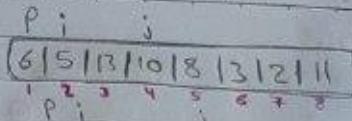 P i j
6|5|13|10|8|3|2|11
1 2 3 4 5 6 7 8
P i